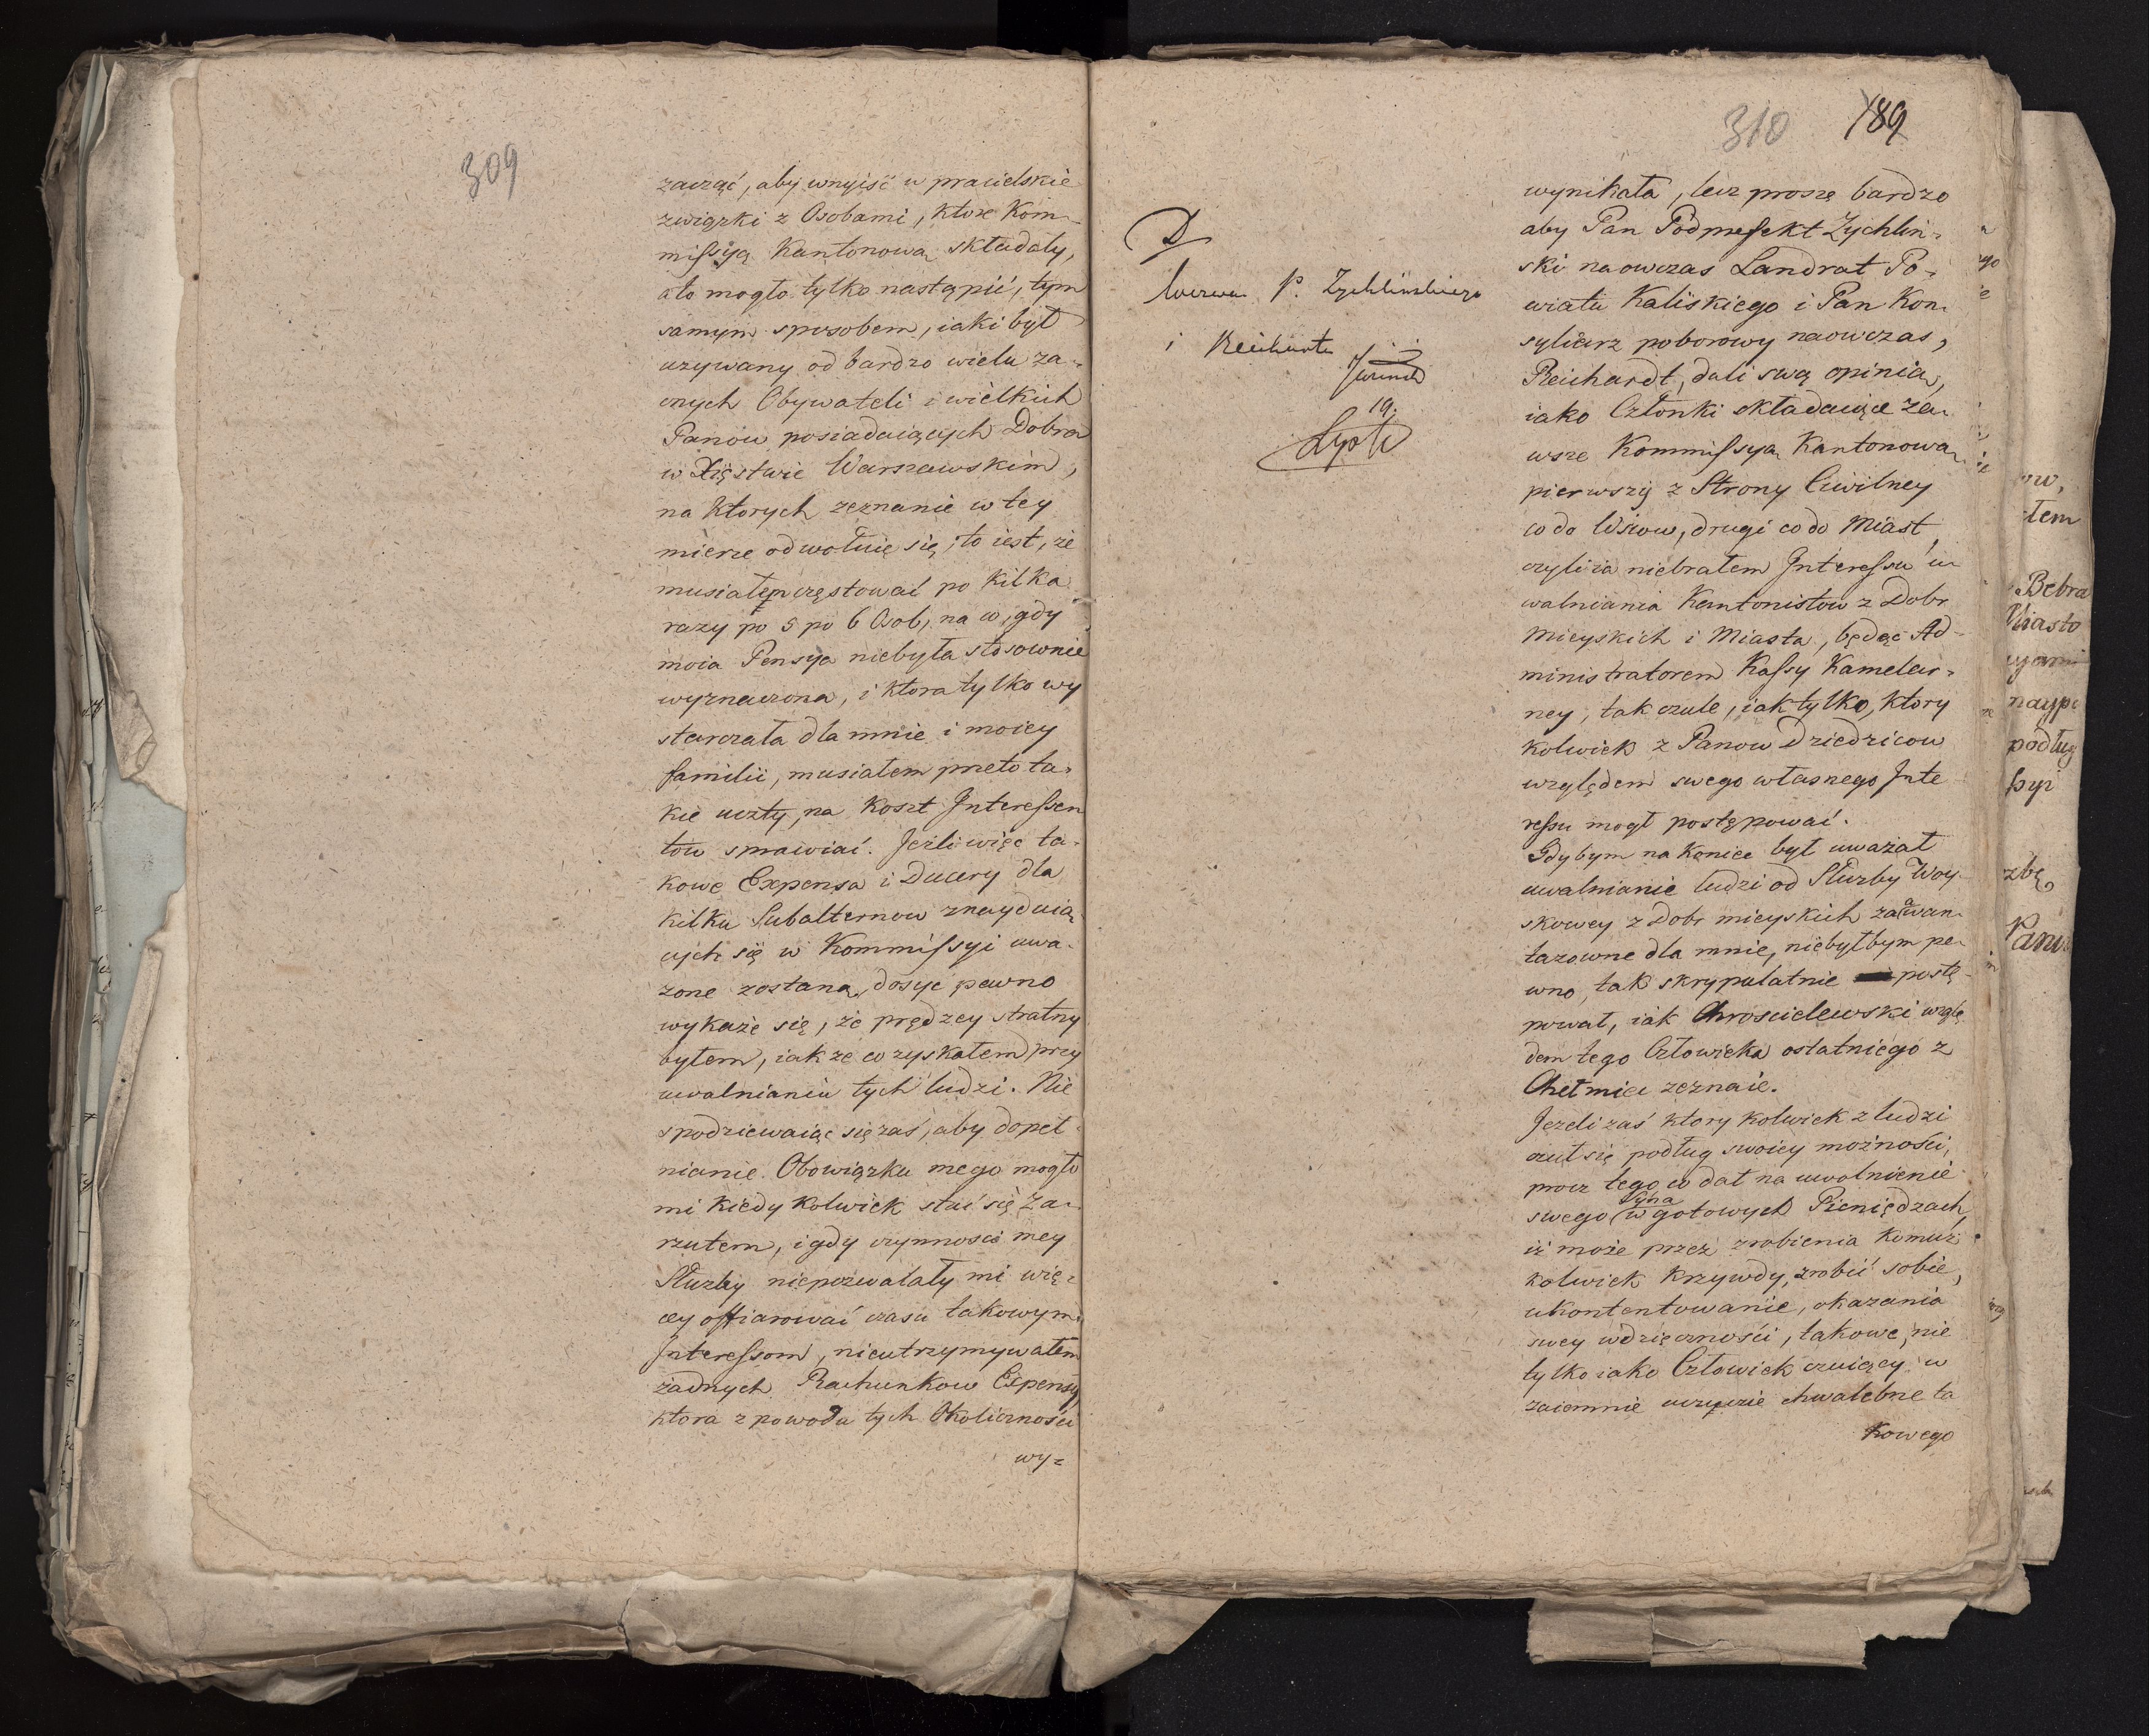 309
zacząć, aby wnyiść w pracielskie
związki z Osobami, ktore Kom-
missyą Kantonową składały,
a to mogło tylko nastąpić, tym
samym sposobem, iaki był
uzywany od bardzo wielu za-
cnych Obywateli i wielkich
Panow posiadaiących Dobra
w Xięstwie Warszawskim,
na ktorych zeznanie w tey
mierze odwołuię się, to iest, że
musiałem częstować po kilka
razy po 5 po 6 Osob, na co, gdy
moia Pensya niebyła stosownie
wyznaczona, i ktora tylko wy
starczała dla mnie i moiey
familii, musiałem przeto ta-
kie uczty, na koszt Interessen
tow sprawiać. Jeżli więc ta-
kowe Expensa i Ducery dla
kilku Subalternow znayduią
cych się w Kommissyi uwa-
zone zostaną, dosyć pewno
wykaże się, że prędzey stratny
byłem, iak ze co zyskałem przy
uwalnianiu tych ludzi. Nie
spodziewaiąc się zaś, aby dopeł-
nianie Obowiązku mego mogło
mi kiedykolwiek stać się Za-
rzutem, i gdy czynnosci mey
Służby niepozwalały mi wię-
cey offiarować czasu takowym
Interessom, nieutrzymywałem
żadnych Rachunkow Expensy
ktora z powodu tych Okoliczności
wy=
310 189
D
P. Zychlinskiego
i Reicharta
19.
wynikała, lecz proszę bardzo
aby Pan Podprefekt Zychlin-
ski naowczas Landrat Po-
wiatu Kaliskiego i Pan Kon-
syliarz poborowy naowczas,
Reichardt, dali swą opinią,
iako Członki składaiące za-
wsze Kommissyą Kantonową
pierwszy z Strony Cywilney
co do Wsiow, drugi co do Miast,
czyli ia niebrałem Interessu u-
walniania Kantonistow z Dobr
Mieyskich i Miasta, będąc Ad-
ministratorem Kassy Kamelar-
ney, tak czule, iak tylko, ktory
kolwiek z Panow Dziedzicow
względem swego własnego Inte
ressu mogł postępować.
Gdybym na koniec był uważał
uwalnianie ludzi od Służby Woy-
skowey z Dobr mieyskich za awan-
tazowne dla mnie, niebyłbym pe-
wno, tak skrypulatnie postę-
pował, iak Chroscielewski wzglę
dem tego Człowieka ostatniego z
Chełmca zeznaie.
Jezeli zaś ktory kolwiek z ludzi
czuł się podług swoiey możności,
procz tego co dał na uwolnienie
Syna
swego w gotowych Pieniędzach,
iż może przez zrobienia komuż
kolwiek krzywdy, zrobić sobie,
ukontentowanie, okazania
swey wdzięczności, takowe, nie
tylko iako Człowiek czuiący w
zaiemnie uczucie chwalebne ta
kowego
Bebra
Miasto
podług
Panu